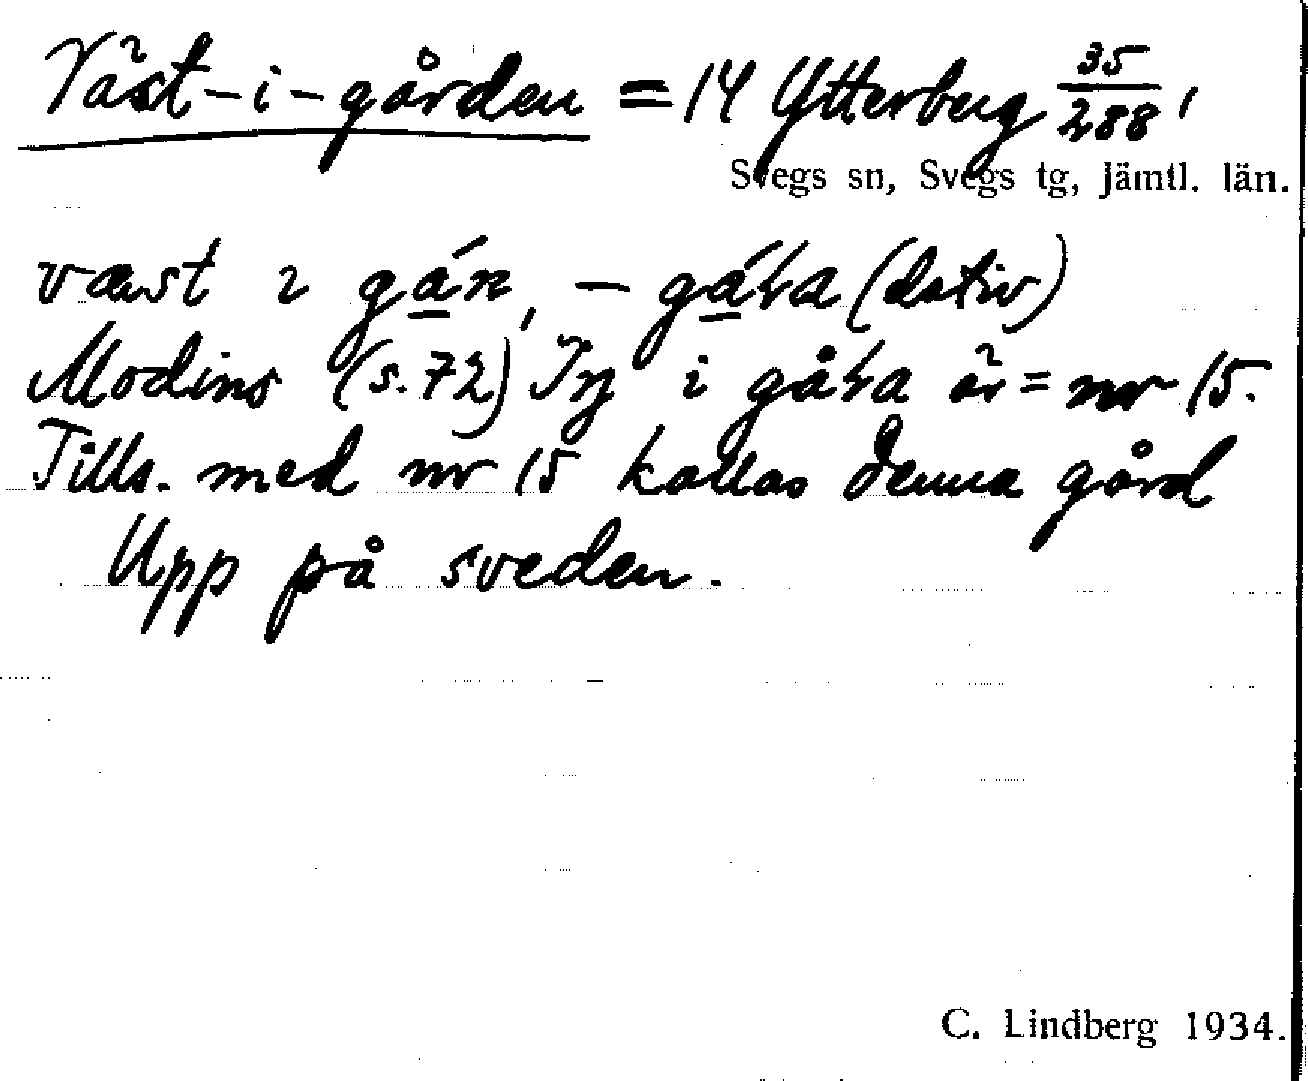 Väst-i-gården = 14 Ytterberg 35/288,
Svegs sn, Svegs tg, Jämtl. län.
væst i gáɴ, – gáɫa (dativ)
Modins (s. 72) i gåɫa är = nr 15.
Tills. med nr 15 kallas denna gård
Upp på sveden.
C. Lindberg 1934.